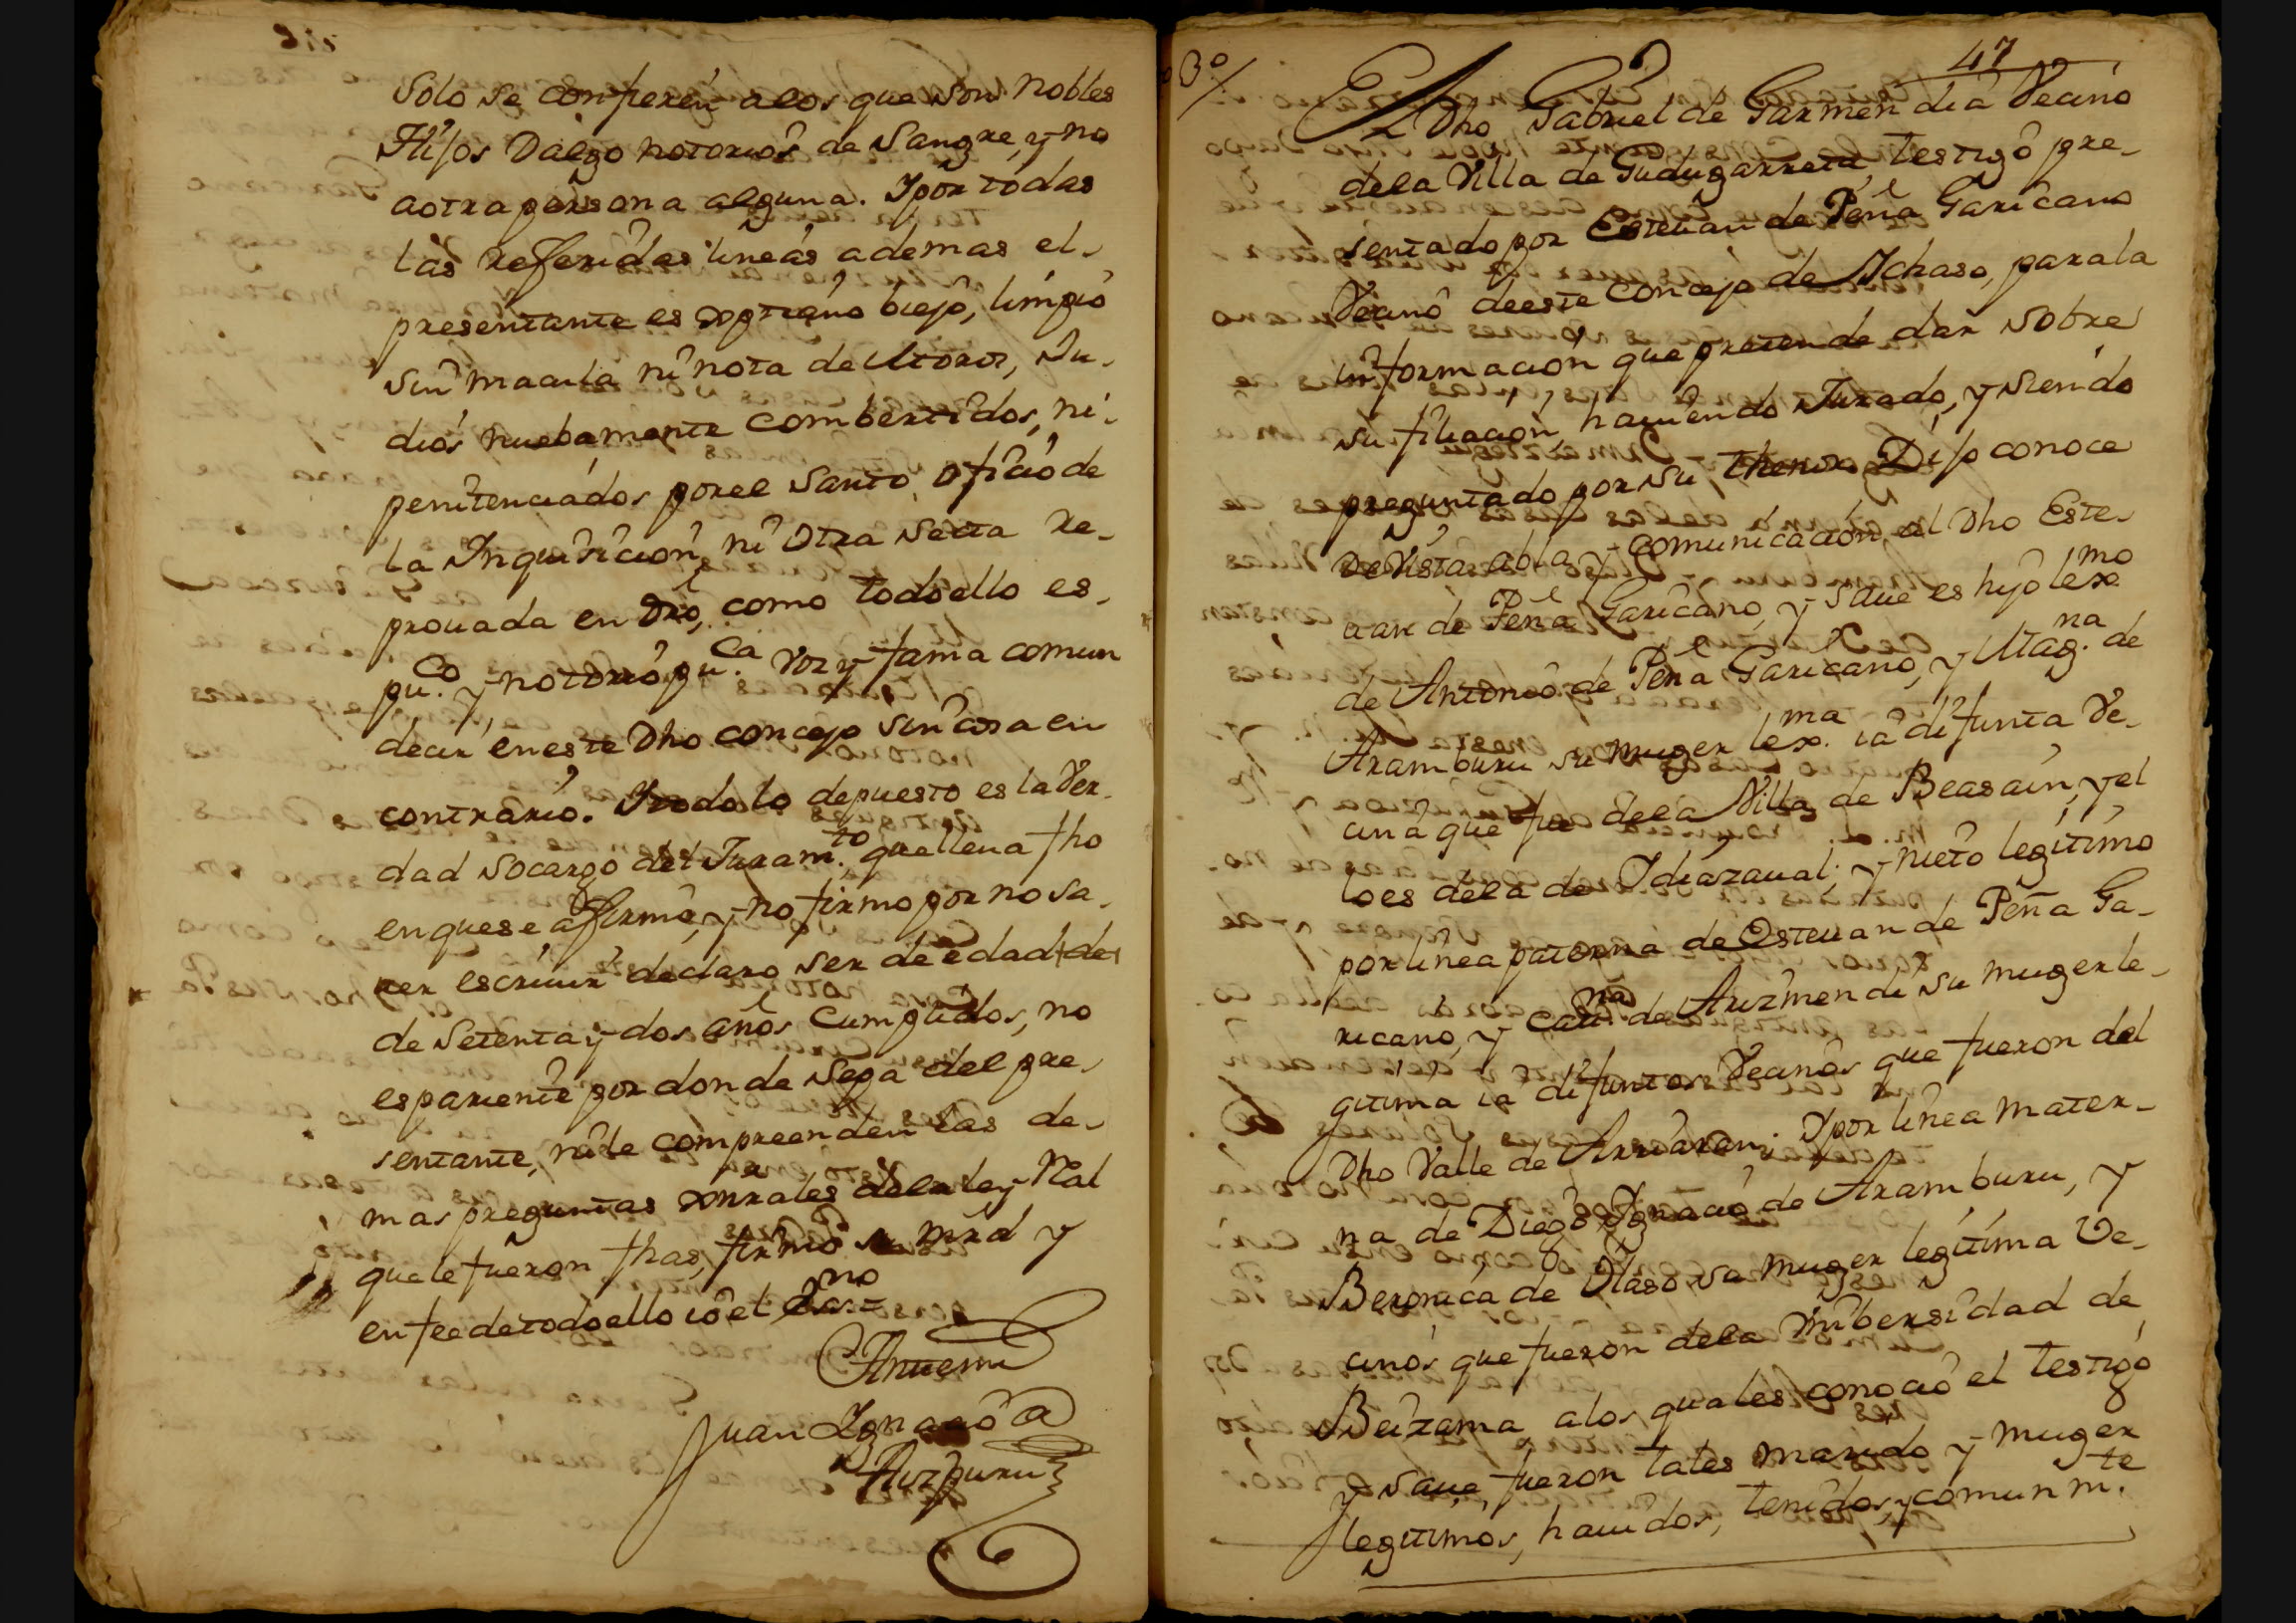 Solo se confieren a los que son nobles
Hijos Dalgo notorios de Sangre, y no
aotra persona alguna. Ypor todas
las Referidas lineas ademas el
presentante es xptiano biejo, limpio
sin macula ni nota de Moros, Ju-
dios nuebamente combertidos, ni
penitenciados por el Santo oficio de
la Inquisicion, ni Otra Secta Re-
prouada en Dro, como todo ello es
pu.co y notorio pu.ca voz y fama comun
decir en este Dho concejo sin cosa en
contrario. Y todo lo depuesto es la Ver-
dad Socargo del Juram.to que lleua fho
en que se affirmo, y no firmo por no sa-
uer escriuir declaro ser de edad de
de Setenta y dos años Cumplidos, no
es pariente por donde Sepa del pre-
sentante, ni le compreenden las de-
mas preguntas xnrales dela ley Real
que le fueron fhas, firmo su mrd y
en fee de todo ello io el Es.no =
Antemi
Juan Ignacio de
Aizpuru
47
3º/
El Dho Gabriel de Garmendia Vecino
dela Villa de Gudugarreta, testigo pre-
sentado por Esteuan de Peña Garicano
Vecino deeste Concejo de Ichaso, para la
informacion que pretende dar sobre
su filiacion, hauiendo Jurado, y siendo
preguntado por su thenor Dijo conoce
de Vista abla y comunicacion, al Dho Este-
uan de Peña Garicano, y saue es hijo lex.mo
de Antonio de Peña Garicano, y Mag.na de
Aramburu su muger lex.ma ia difunta Ve-
cina que fue dela Villa de Beasain, y el
lo es dela de Idiazaual; y nieto legitimo
por linea paterna de Esteuan de Peña Ga-
ricano, y Cat.na de Arizmendi su muger le-
gitima ia difuntos Vecinos que fueron del
Dho Valle de Arriaran; Ypor linea mater-
na de Diego Ignacio de Aramburu, y
Beronica de Olaso su muger legitima Ve-
cinos que fueron dela Vnibersidad de
Beizama, alos quales conocio el testigo
y saue, fueron tales marido y muger
legitimos, hauidos, tenidos, y comunm.te